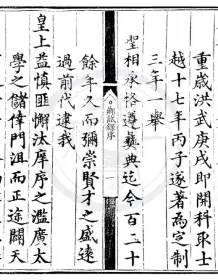 重歲洪武庚戌即開科取士
越十七年丙子遂著為定制
三年一舉
聖相承恪遵彝典迄今百二十
餘年久而彌崇賢才之盛遠
過前代逮我
皇上益慎匪懈汰庠序之濫廣太
學之儲倖門沮而正途闢天